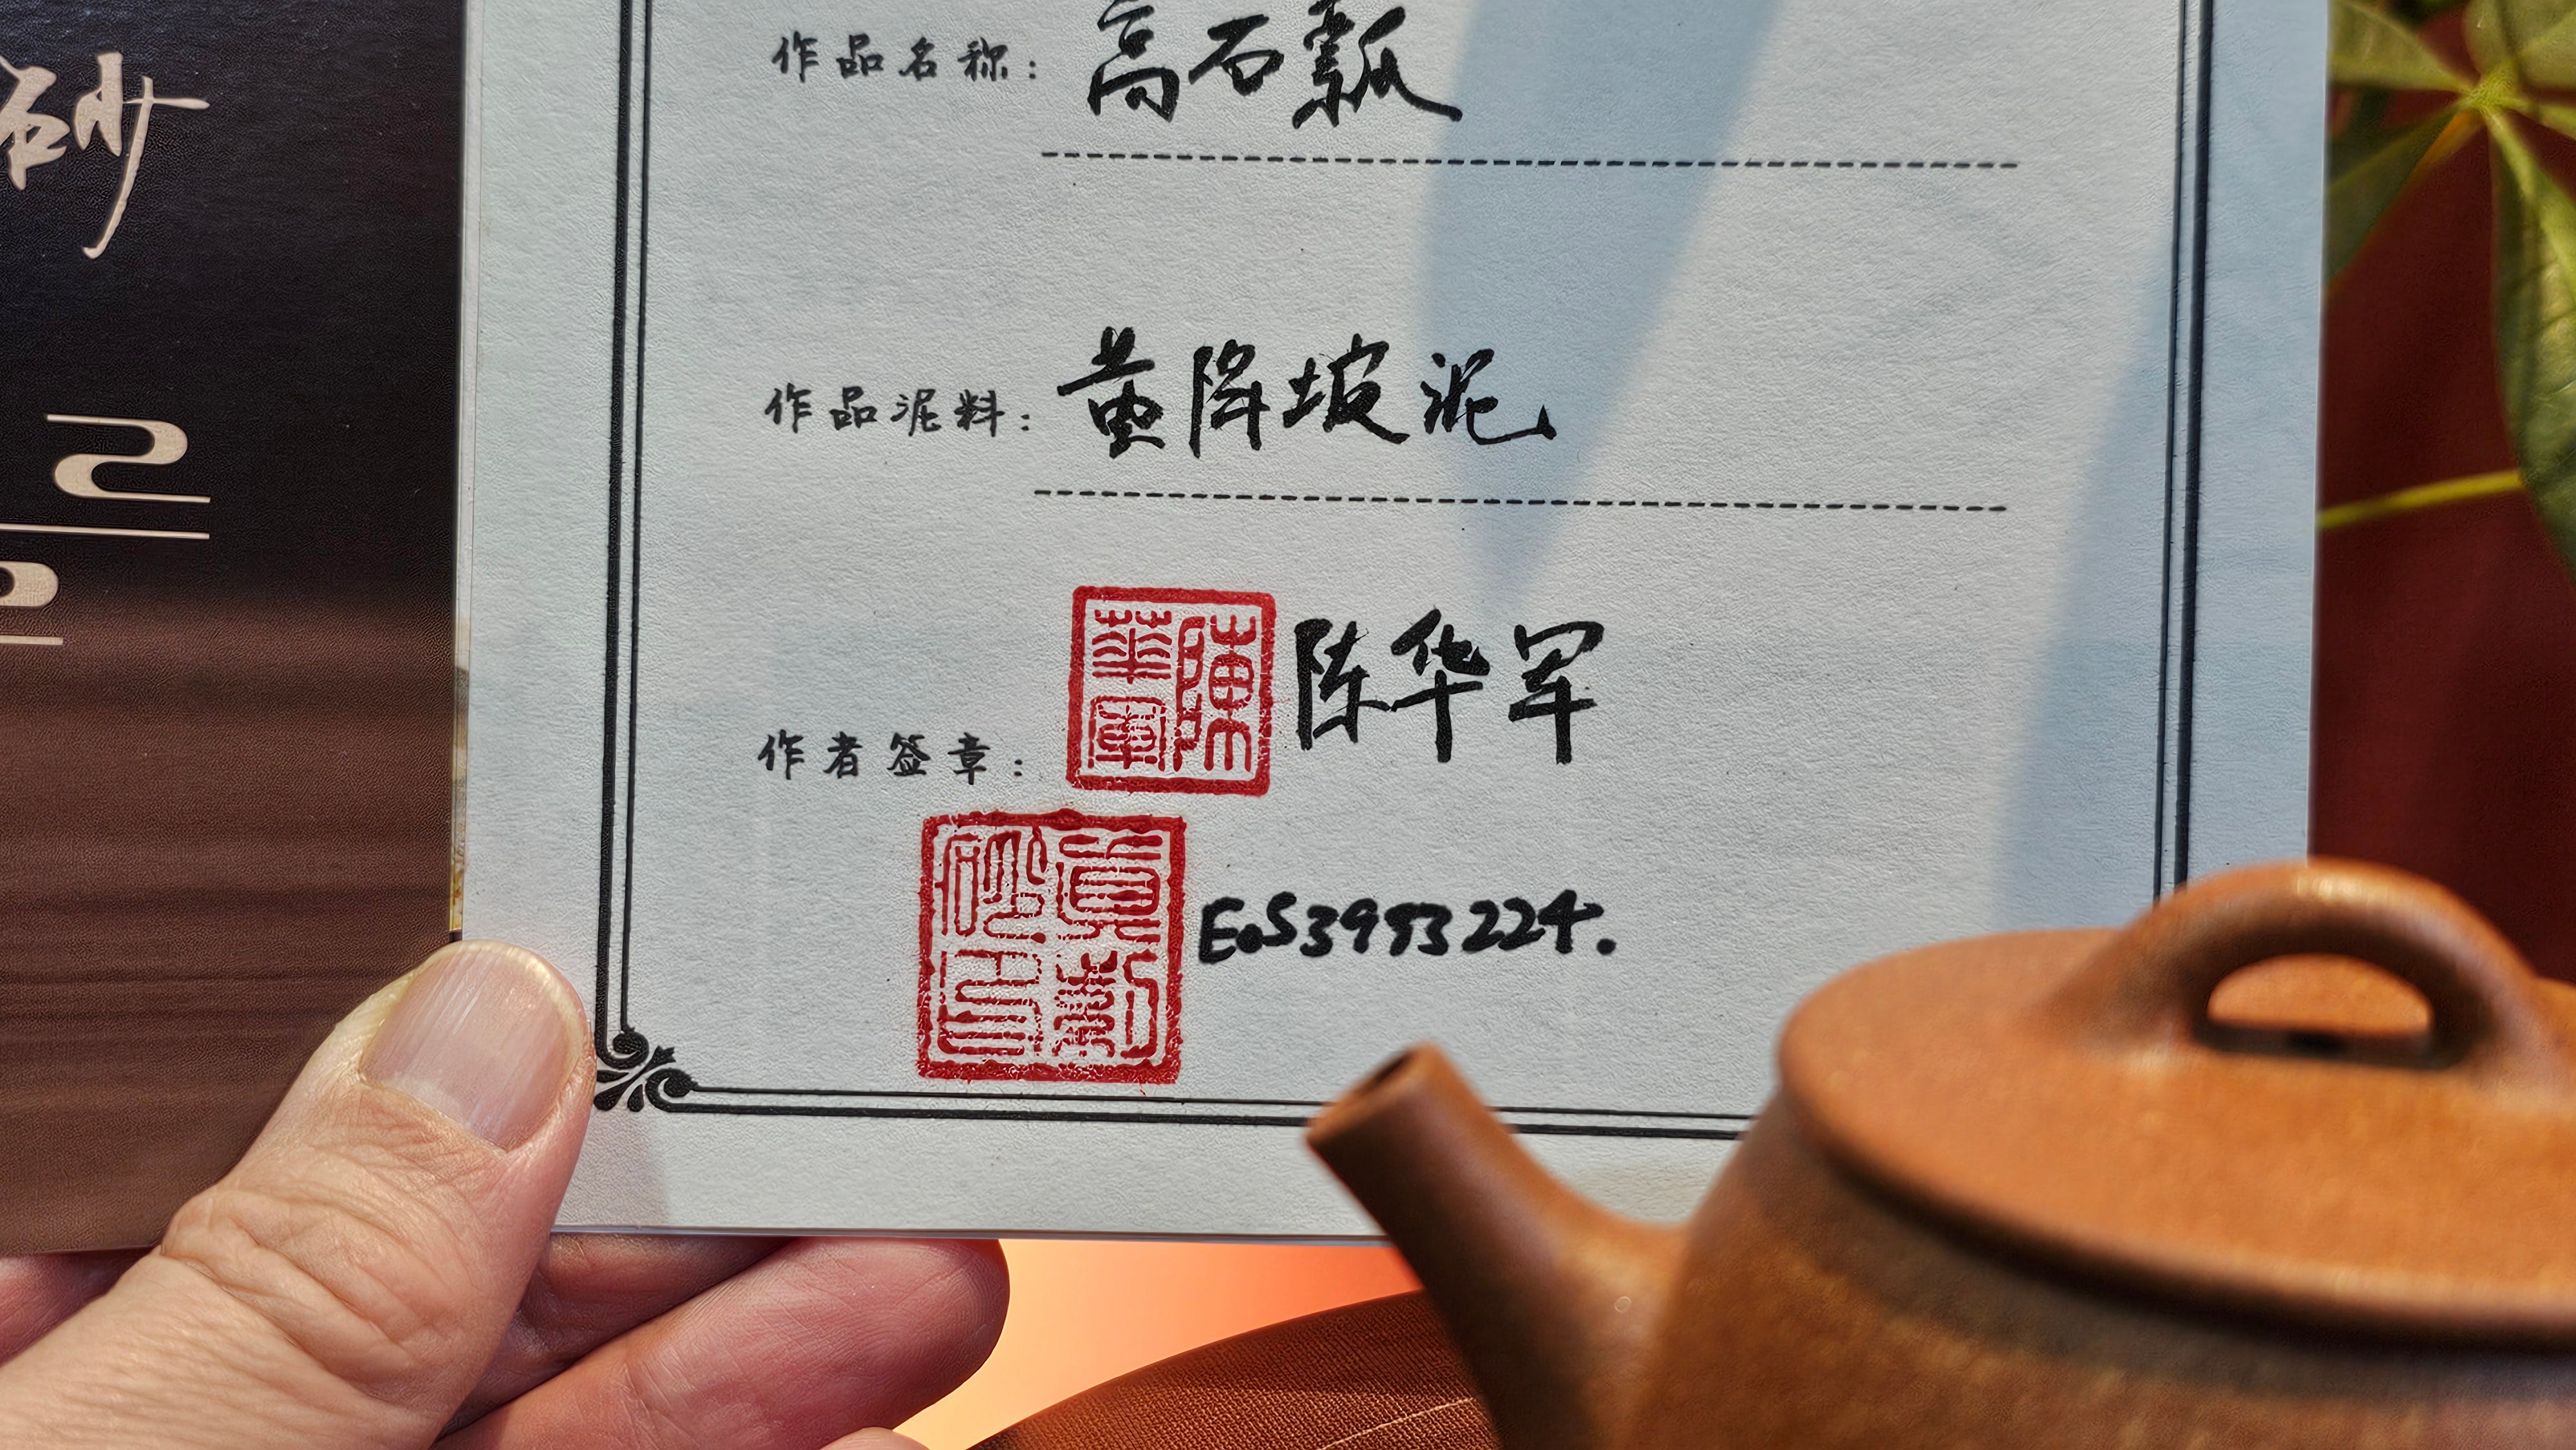 砂
作品名称：高石瓢
作品泥料：黄降坡泥
作者签章：陳華軍 陈华军
E0S3953224.